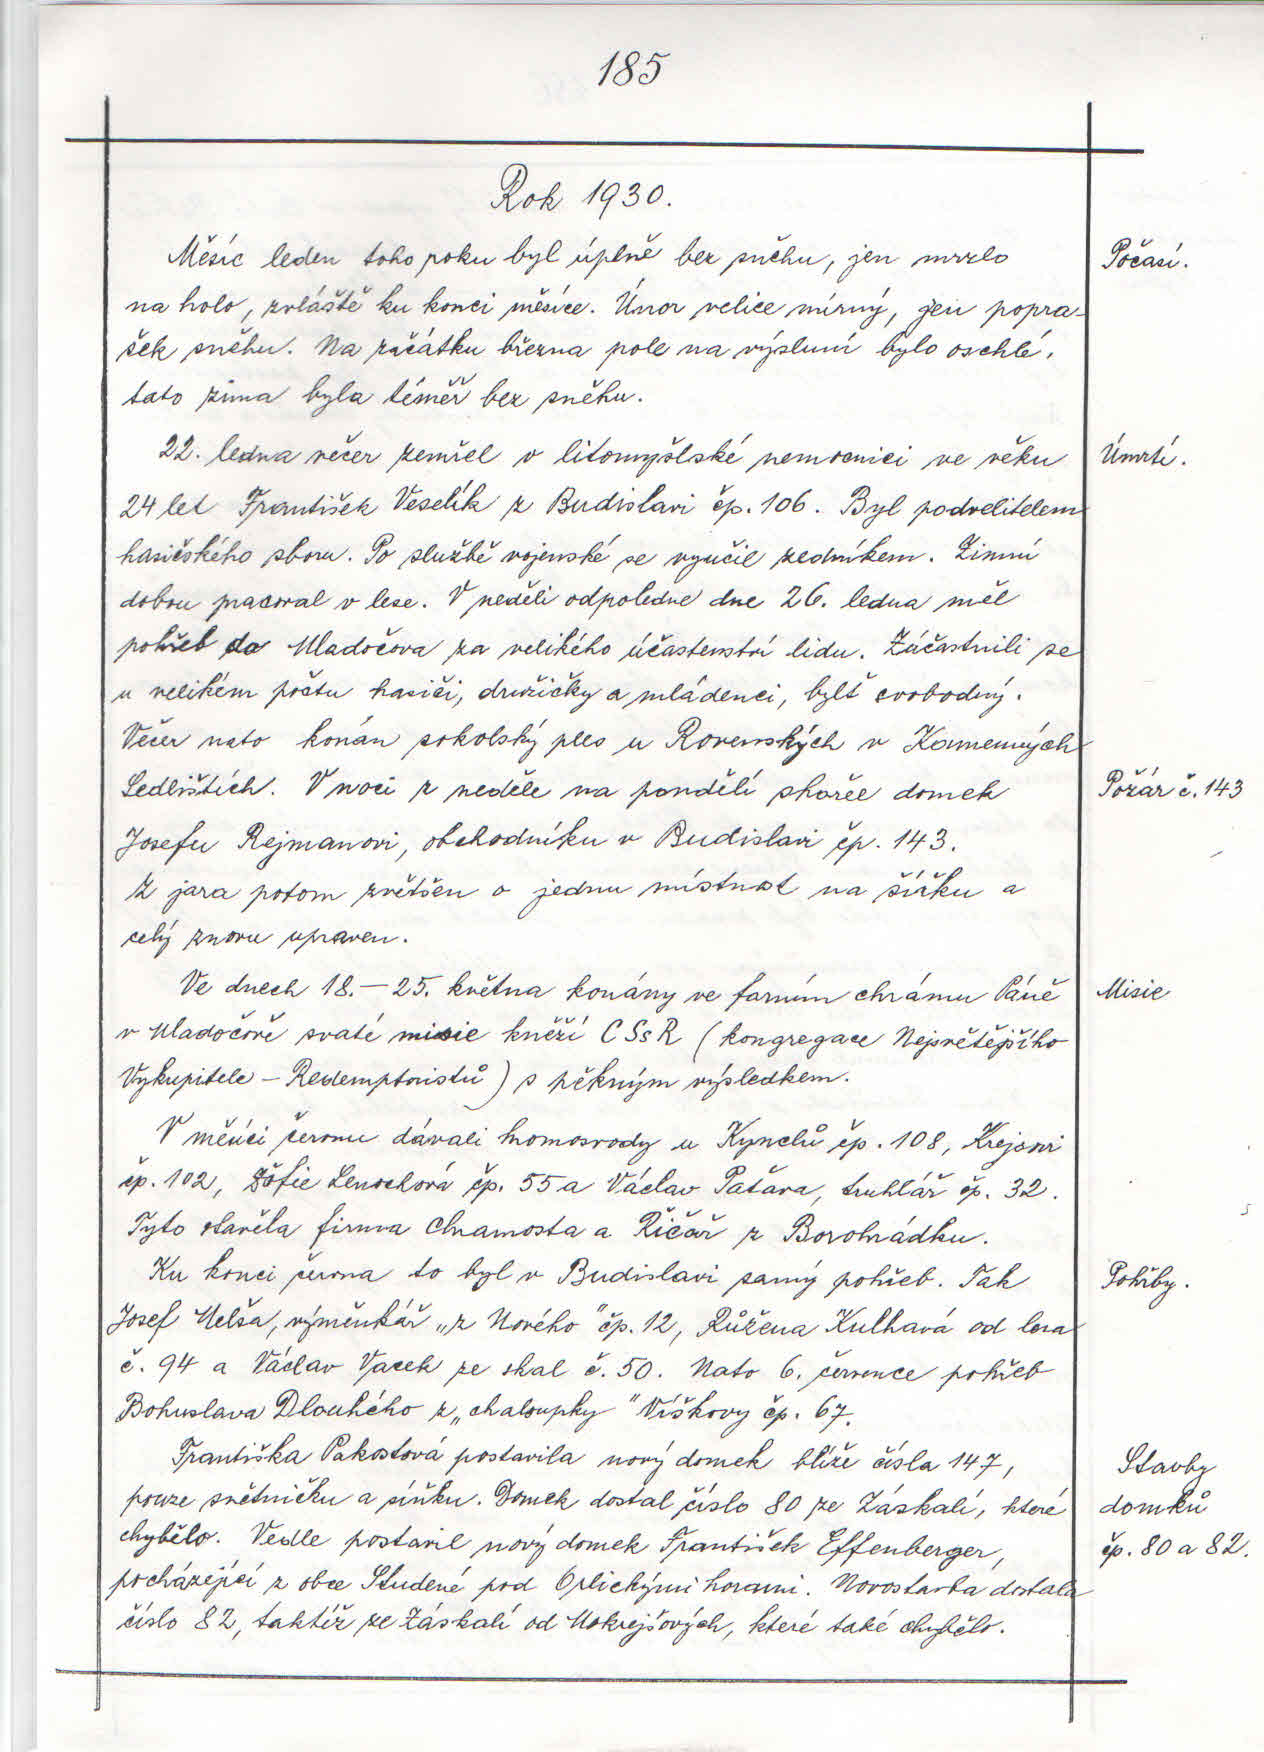 185
Rok 1930.
Měsíc leden toho roku byl úplně bez sněhu, jen mrzlo
Počasí.
na holo, zvláště ku konci měsíce. Únor velice mírný, jen popra-
šek sněhu. Na začátku března pole na výsluní bylo oschlé,
tato zima byla téměř bez sněhu.
22. ledna večer zemřel v litomyšlské nemocnici ve věku
Úmrtí.
24 let František Veselík z Budislavi čp. 106. Byl podvelitelem
hasičského sboru. Po službě vojenské se vyučil zedníkem. Zimní
dobou pracoval v lese. V neděli odpoledne dne 26. ledna měl
pohřeb do Mladočova za velikého účastenství lidu. Zúčastnili se
u velikém počtu hasiči, družičky a mládenci, bylť svobodný.
Večer nato konán sokolský ples u Rovenských v Kamenných
Sedlištích. V noci z neděle na pondělí shořel domek
Požár č. 143
Josefu Rejmanovi, obchodníku v Budislavi čp. 143.
Z jara potom zvětšen o jednu místnost na šířku a
celý znovu upraven.
Ve dnech 18. – 25. května konány ve farním chrámu Páně
Misie
v Mladočově svaté misie kněží CSsR (kongregace Nejsvětějšího
Vykupitele – Redemptoristů) s pěkným výsledkem.
V měsíci červnu dávali hromosvody u Kynclů čp. 108, Krejsovi
čp. 102, Žofie Lenochová čp. 55 a Václav Patava, truhlář čp. 32.
Tyto stavěla firma Chramosta a Řičař z Borohrádku.
Ku konci června to byl v Budislavi samý pohřeb. Tak
Pohřby.
Josef Melša, výměnkář „z Nového" čp. 12, Růžena Kulhavá od lesa
č. 94 a Václav Vacek ze skal č. 50. Nato 6. července pohřeb
Bohuslava Dlouhého z „chaloupky" Víškovy čp. 67.
Františka Pakostová postavila nový domek blíže čísla 147,
Stavby
pouze světničku a síňku. Domek dostal číslo 80 ze Záskalí, které
domků
chybělo. Vedle postavil nový domek František Effenberger,
čp. 80 a 82.
pocházející z obce Studené pod Orlickými horami. Novostavba dostala
číslo 82, taktéž ze Záskalí od Mokrejšových, které také chybělo.